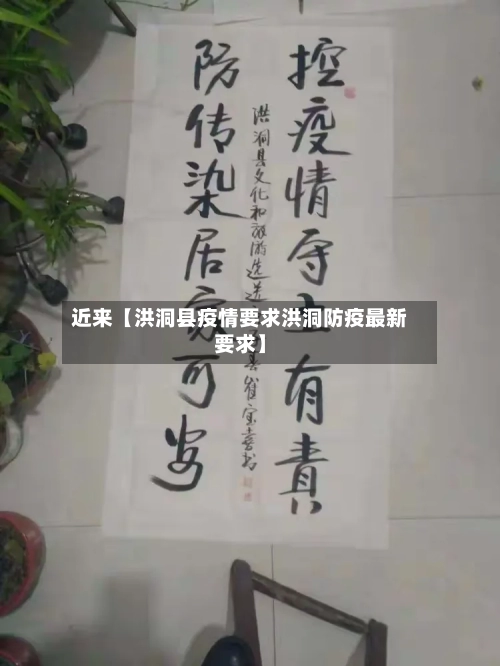 控疫情守土有責
洪洞县文化和旅游选送
崔宝喜书
防传染居家可安
近来【洪洞县疫情要求洪洞防疫最新
要求】